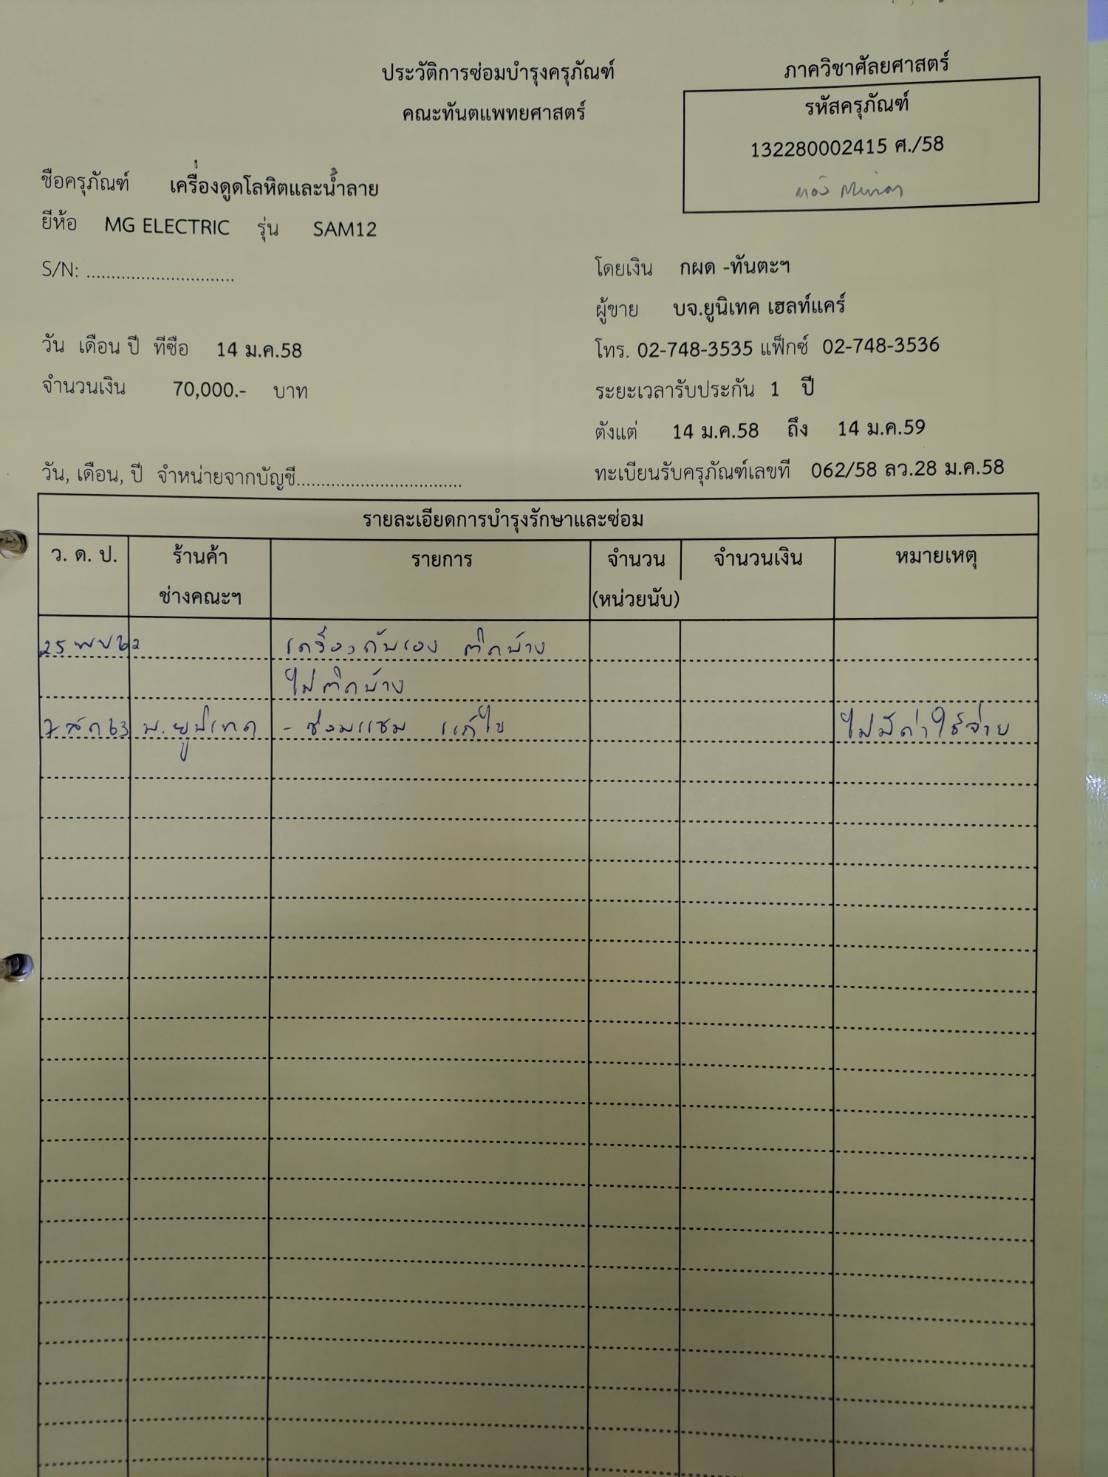 ประวัติการซ่อมบำรุงครุภัณฑ์
คณะทันตแพทยศาสตร์
ภาควิชาศัลยศาสตร์
รหัสครุภัณฑ์
132280002415 ศ./58
ชื่อครุภัณฑ์ เครื่องดูดโลหิตและน้ำลาย
ยี่ห้อ MG ELECTRIC รุ่น SAM12
S/N: .............................
โดยเงิน กผด -ทันตะฯ
ผู้ขาย บจ.ยูนิเทค เฮลท์แคร์
วัน เดือน ปี ที่ซื้อ 14 ม.ค.58
โทร. 02-748-3535 แฟ็กซ์ 02-748-3536
จำนวนเงิน 70,000.- บาท
ระยะเวลารับประกัน 1 ปี
ตั้งแต่ 14 ม.ค.58 ถึง 14 ม.ค.59
วัน, เดือน, ปี จำหน่ายจากบัญชี.................................
ทะเบียนรับครุภัณฑ์เลขที่ 062/58 ลว.28 ม.ค.58
รายละเอียดการบำรุงรักษาและซ่อม
ว. ด. ป. ร้านค้า รายการ จำนวน จำนวนเงิน หมายเหตุ
ช่างคณะฯ (หน่วยนับ)
25 พย 62 เครื่องดับเอง ติดบ้าง
ไม่ติดบ้าง
7 สค 63 บ.ยูนิเทค - ซ่อมแซม แก้ไข ไม่มีค่าใช้จ่าย